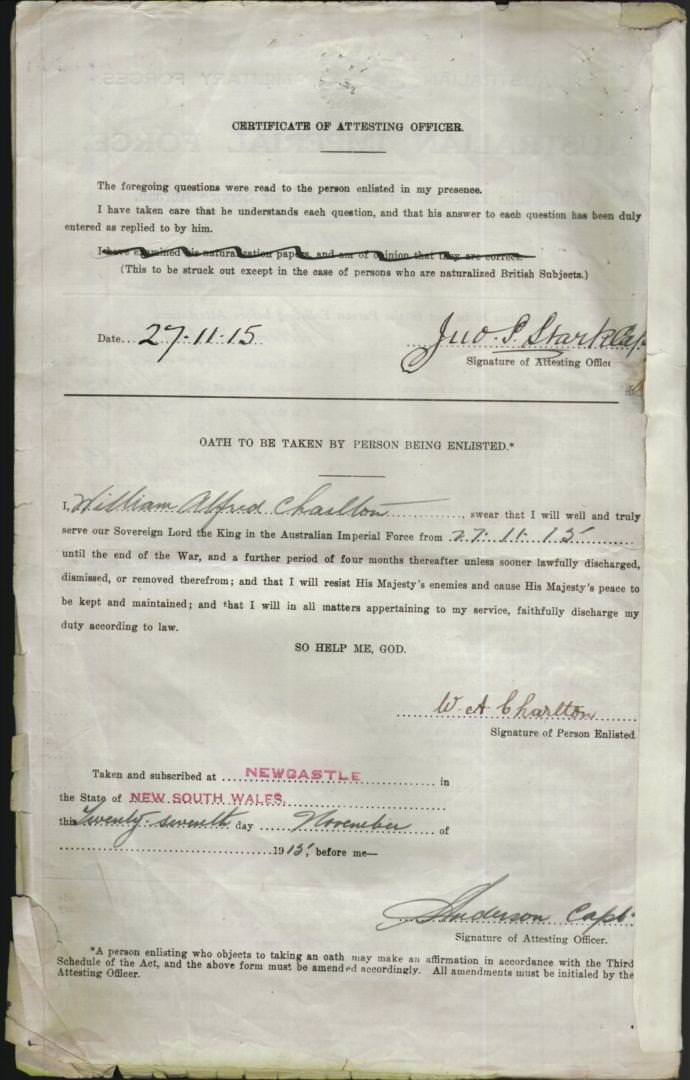 CERTIFICATE OF ATTESTING OFFICER.
The foregoing questions were read to the person enlisted in my presence.
I have taken care that he understands each question, and that his answer to each question has been duly
entered as replied to by him.
I have examined his naturalization papers, and am of opinion that they are correct.
(This to be struck out except in the case of persons who are naturalized British Subjects.)
Date... 27.11.15
Jno. S. Stark Cap
Signature of Attesting Office
OATH TO BE TAKEN BY PERSON BEING ENLISTED.*
I, William Alfred Charlton, swear that I will well and truly
serve our Sovereign Lord the King in the Australian Imperial Force from 27.11.15
until the end of the War, and a further period of four months thereafter unless sooner lawfully discharged,
dismissed, or removed therefrom; and that I will resist His Majesty's enemies and cause His Majesty's peace to
be kept and maintained; and that I will in all matters appertaining to my service, faithfully discharge my
duty according to law.
SO HELP ME, GOD.
W. A Charlton
Signature of Person Enlisted
Taken and subscribed at NEWCASTLE in
the State of NEW SOUTH WALES.
this Twenty-seventh day November of
1915, before me—
Anderson Capt.
Signature of Attesting Officer.
*A person enlisting who objects to taking an oath may make an affirmation in accordance with the Third
Schedule of the Act, and the above form must be amended accordingly. All amendments must be initialed by the
Attesting Officer.